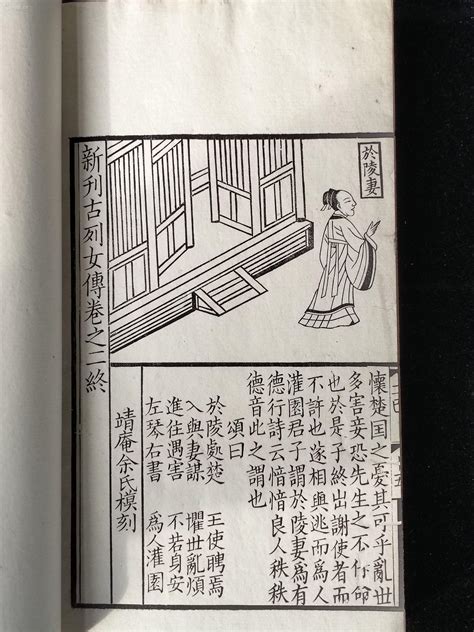 於陵妻
懷楚国之憂其可乎亂世
多害妾恐先生之不保命
也於是子終出謝使者而
不許也遂相與逃而爲人
灌園君子謂於陵妻爲有
德行詩云愔愔良人秩秩
德音此之謂也
頌曰
於陵處楚　王使聘焉
入與妻謀　懼世亂煩
進往遇害　不若身安
左琴右書　爲人灌園
靖庵余氏模刻
新刊古列女傳卷之二終